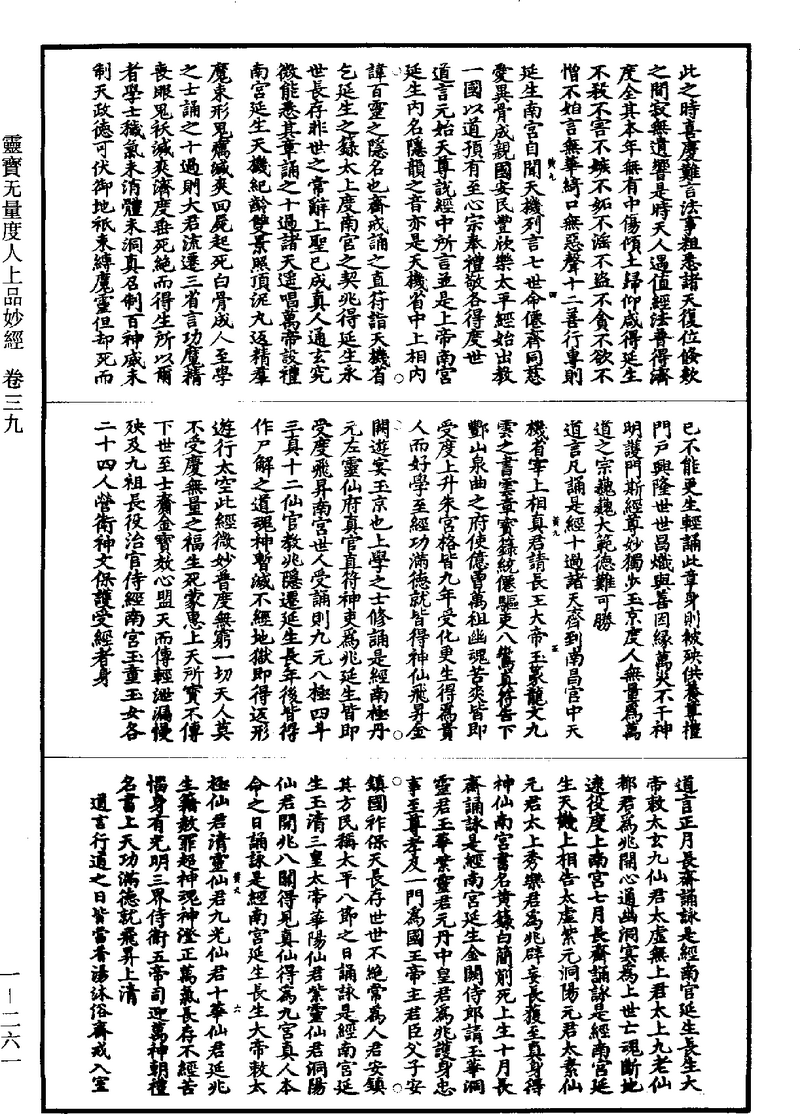 靈寶无量度人上品妙經 卷三九
一—二六一
此之時喜慶難言法事粗悉諸天復位倏欻
之間寂無遺響是時天人遇值經法普得濟
度全其本年無有中傷傾土歸仰咸得延生
不殺不害不嫉不妬不淫不盜不貪不欲不
憎不姤言無華綺口無惡聲十二善行專則
延生南宮自聞天機列言七世命僊齊同慈
愛異骨成親國安民豐欣樂太平經始出教
一國以道預有至心宗奉禮敬各得度世
道言元始天尊說經中所言並是上帝南宮
延生內名隱韻之音亦是天機省中上相內
諱百靈之隱名也齋戒誦之直符詣天機省
乞延生之籙太上度南宮之契兆得延生永
世長存非世之常辭上聖已成真人通玄究
微能悉其章誦之十過諸天遥唱萬帝設禮
南宮延生天機紀齡雙景照頂泥九返精羣
魔束形鬼癘滅爽回屍起死白骨成人至學
之士誦之十過則大君流遷三省言功魔精
喪眼鬼袄滅爽濟度垂死絶而得生所以爾
者學士穢氣未消體未洞真召制百神威未
制天政德可伏御地祇束縛魔靈但却死而
已不能更生輕誦此章身則被殃供養尊禮
門戶興隆世世昌熾與善因緣萬災不干神
明護門斯經尊妙獨步玉京度人無量為萬
道之宗巍巍大範德難可勝
道言凡誦是經十過諸天齊到南昌宮中天
機省宰上相真君請長王大帝玉篆龍文九
雲之書雲章寶籙統僊驅吏八鸞真符告下
酆山泉曲之府使億曹萬祖幽魂苦爽皆即
受度上升朱宮格皆九年受化更生得為貴
人而好學至經功滿德就皆得神仙飛昇金
闕遊宴玉京也上學之士修誦是經南極丹
元左靈仙府真官直符神吏為兆延生皆即
受度飛昇南宮世人受誦則九元八極四斗
三真十二仙官教兆隱遷延生長年後皆得
作尸解之道魂神暫滅不經地獄即得返形
遊行太空此經微妙普度無窮一切天人莫
不受慶無量之福生死蒙惠上天所寶不傳
下世至士齎金寶效心盟天而傳輕泄漏慢
殃及九祖長役治官侍經南宮玉童玉女各
二十四人營衛神文保護受經者身
道言正月長齋誦詠是經南宮延生長生大
帝敕太玄九仙君太虛無上君太上九老仙
都君為兆開心通幽洞冥為上世亡魂斷地
逮役度上南宮七月長齋誦詠是經南宮延
生天機上相告太虛紫元洞陽元君太素仙
元君太上秀樂君為兆辟妄長獲至真身得
神仙南宮書名黃籙白簡削死上生十月長
齋誦詠是經南宮延生金闕侍郎請玉華洞
靈君玉華紫靈君元丹中皇君為兆護身忠
事至尊孝及一門為國王帝主君臣父子安
鎮國祚保天長存世世不絶常為人君安鎮
其方民稱太平八節之日誦詠是經南宮延
生玉清三皇太帝華陽仙君紫靈仙君洞陽
仙君開兆八關得見真仙得為九宮真人本
命之日誦詠是經南宮延生長生大帝敕太
極仙君清靈仙君九光仙君十華仙君延兆
生籍赦罪超神魂神澄正萬氣長存不經苦
惱身有光明三界侍衛五帝司迎萬神朝禮
名書上天功滿德就飛昇上清
道言行道之日皆當香湯沐浴齋戒入室